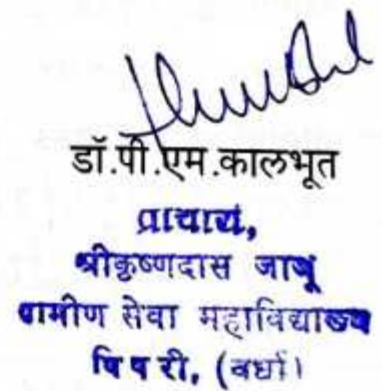 डॉ.पी.एम.कालभूत
प्राचार्य,
श्रीकृष्णदास जाजू
ग्रामीण सेवा महाविद्यालय
पिपरी, (वर्धा)